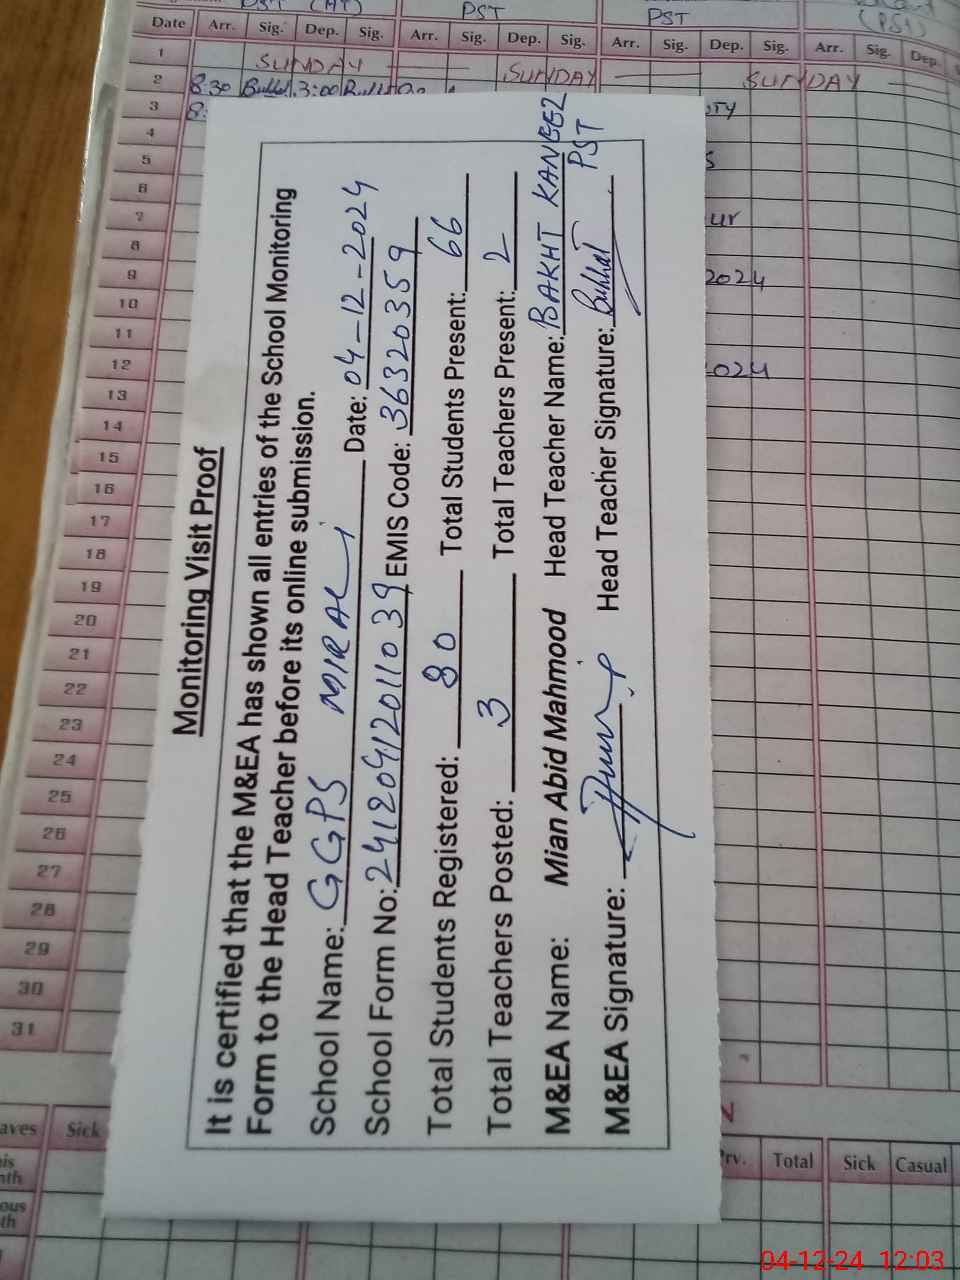 PST (HT)
PST
PST
(PST)
Date Arr. Sig. Dep. Sig. Arr. Sig. Dep. Sig. Arr. Sig. Dep. Sig. Arr. Sig. Dep.
1 SUNDAY SUNDAY SUNDAY
2 8:30 3:00
3 8:
4
5
6
7 ur
8
9 2024
10
11
12 2024
13
14
15
16
17
18
19
20
21
22
23
24
25
26
27
28
29
30
31
Monitoring Visit Proof
It is certified that the M&EA has shown all entries of the School Monitoring
Form to the Head Teacher before its online submission.
School Name: GGPS MIRALI Date: 04-12-2024
School Form No: 24120412011039 EMIS Code: 36320359
Total Students Registered: 80 Total Students Present: 66
Total Teachers Posted: 3 Total Teachers Present: 2
M&EA Name: Mian Abid Mahmood Head Teacher Name: BAKHT KANEEZ
PST
M&EA Signature: Head Teacher Signature: Bukhat
aves Sick rv. Total Sick Casual
04-12-24 12:03